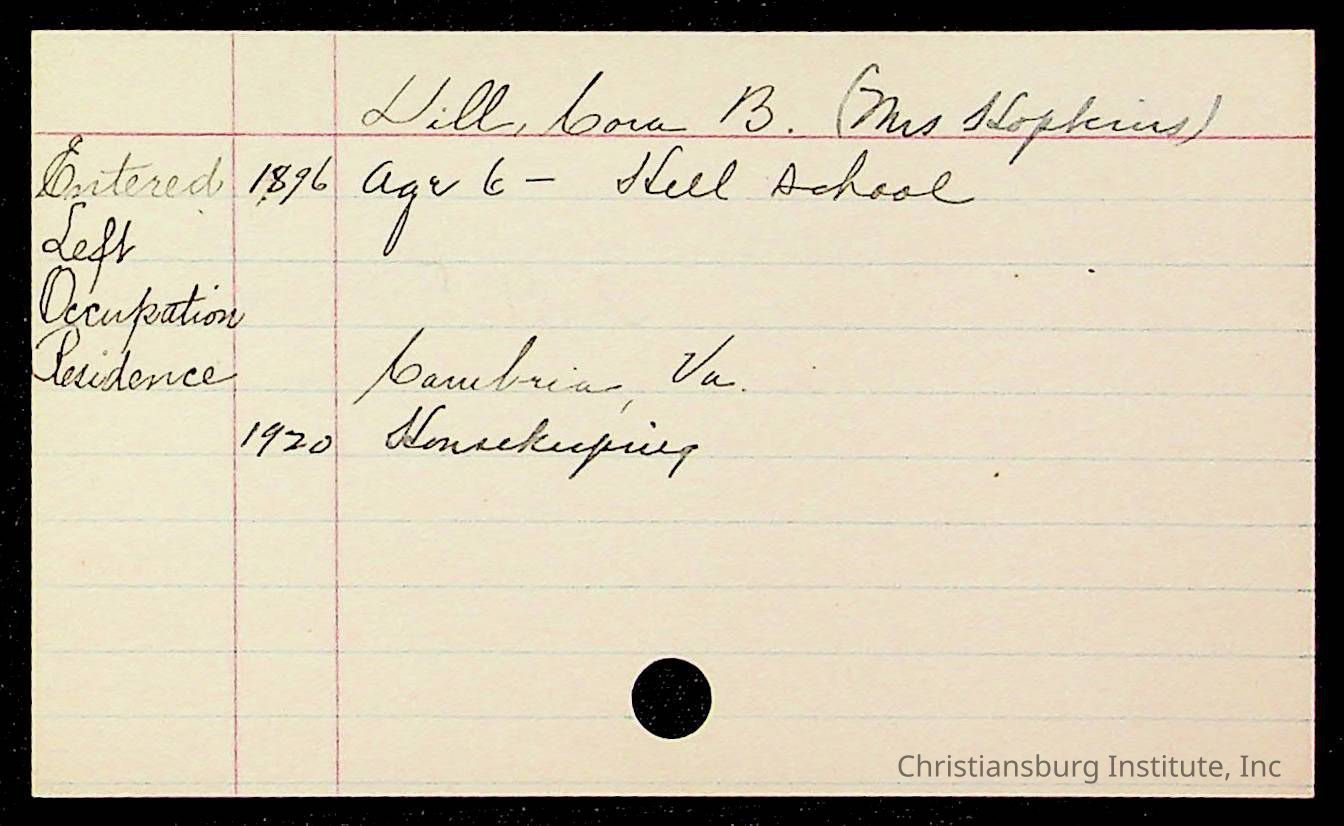 Dill, Cora B. (Mrs Hopkins)
Entered 1896 Age 6 - Hill School
Left
Occupation
Residence Cambria, Va.
1920 Housekeeping
Christiansburg Institute, Inc